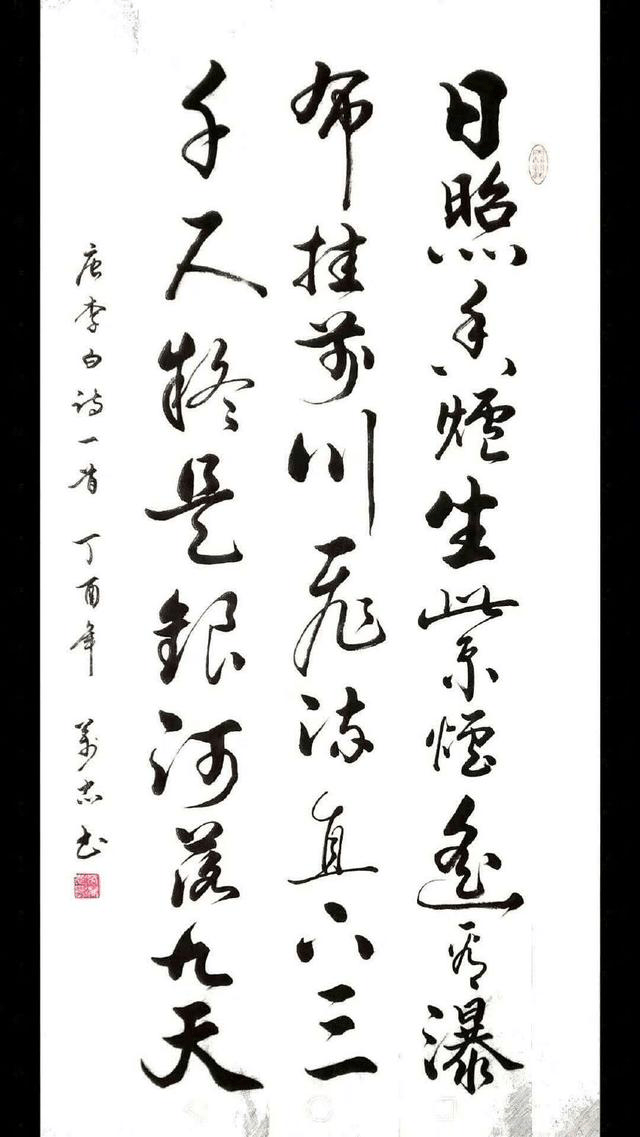 日照香爐生紫煙遙看瀑
布挂前川飛流直下三
千尺疑是銀河落九天
唐李白诗一首 丁酉年 萬志书